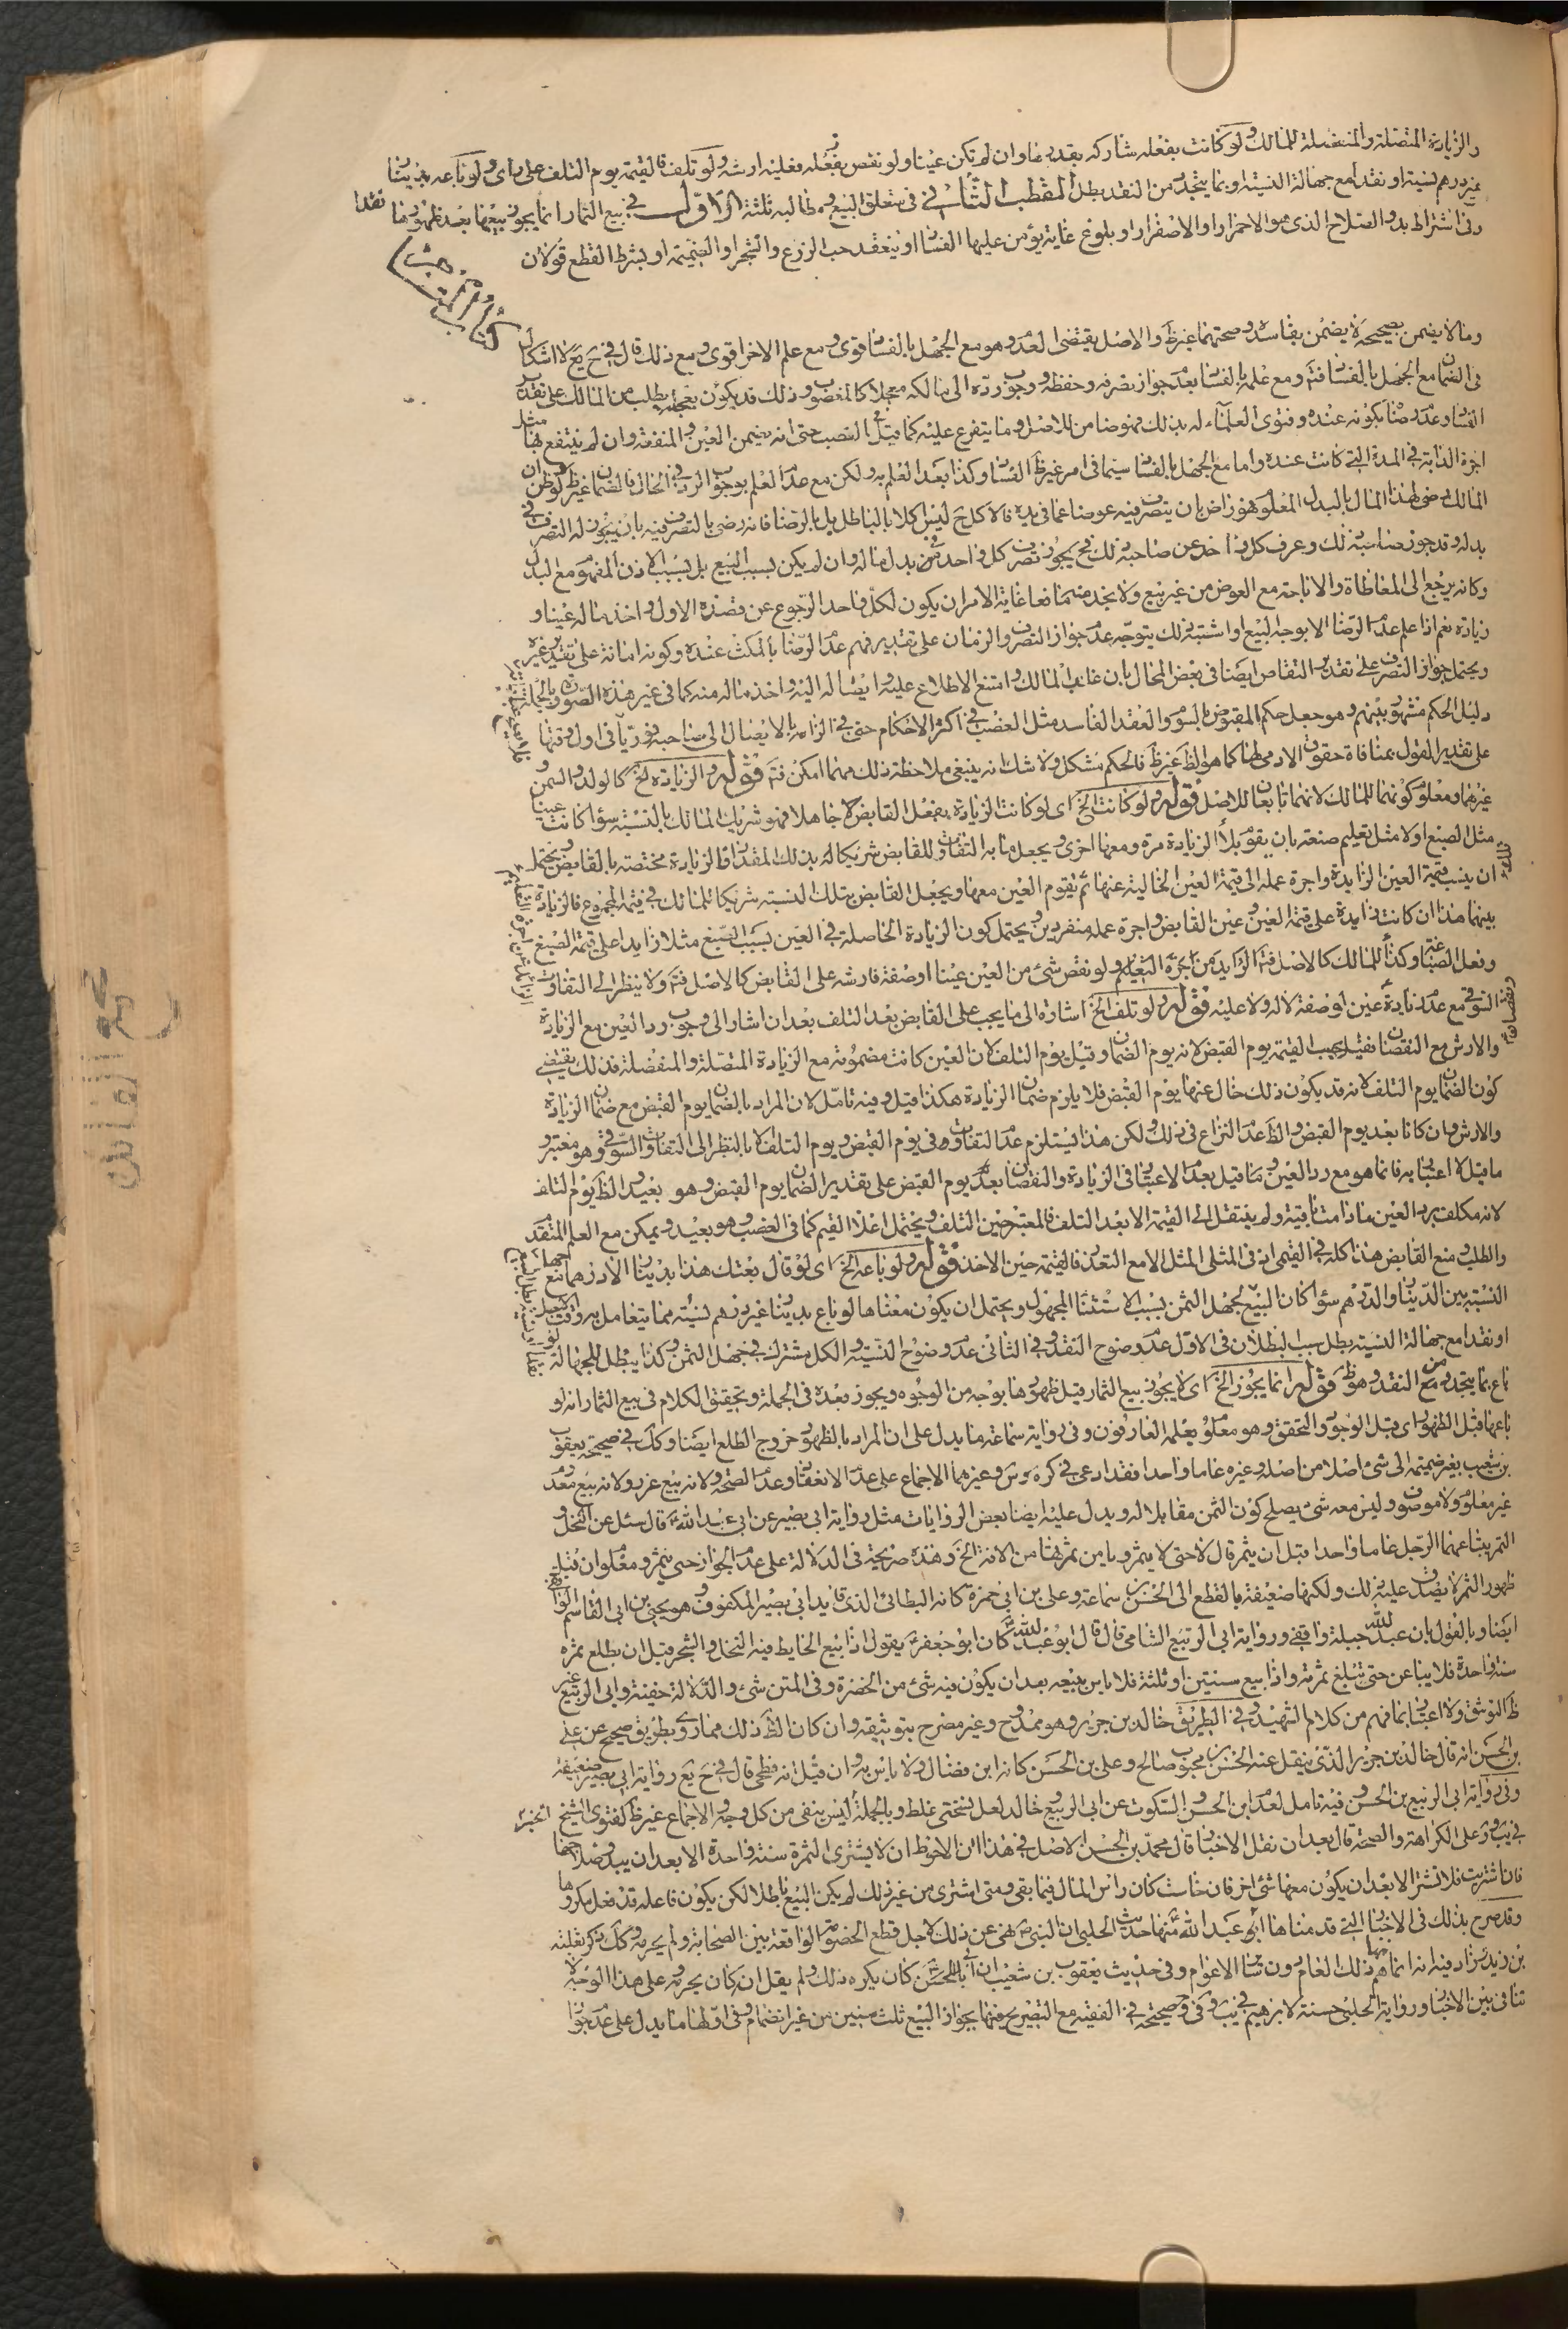 والزيادة المتصلة والمنفصلة للمالك ولو كانت بفعله شاركه بقدرها وان لم تكن عينا ولو نقص بفعله فعليه ارشه ولو تلف فالقيمة يوم التلف على راى ولو باعه بدينار
غير درهم نسية او نقدا مع جهالة النسبة او بما يتجدد من النقد بطل المقطب الثانى فى متعلق البيع ومطالبه ثلثة الاول فى بيع الثمار انما يجوز بيعها بعد ظهورها
وفى اشتراط بدو الصلاح الذى هو الاحمرار او الاصفرار او بلوغ غاية يؤمن عليها الفساد او ينعقد حب الزرع والشجر او الضميمة او بشرط القطع قولان
نقدا
وما لا يضمن بصحيحه لا يضمن بفاسده وصحتهما غير ظ والاصل يقتضى العدم وهو مع الجهل بالفساد قوى ومع علم الاخر اقوى ومع ذلك قال فى ح يع لا اشكال
فى الضمان مع الجهل بالفساد فتم ومع علمه بالفساد بعدم جواز تصرفه وحفظه ووجوب رده الى مالكه معجلا كالمغصوب وذلك قد يكون بطلب من المالك على تقدير
الفساد وعدم رضا بكونه عنده وفتوى العلماء له بذلك فهو ضامن للاصل وما يتفرع عليه كما قيل فى الغصب حتى انه يضمن العين والمنفعة وان لم ينتفع بها مثل
اجرة الدابة فى المدة التى كانت عنده واما مع الجهل بالفساد سيما فى امر غير ظ الفساد وكذا بعد العلم به ولكن مع عدم العلم بوجوب الرد فى الحال بالضمان غير ظ لو ظن ان
المالك رضى لهذا المال بالبدل المعلوم فهو راض بان يتصرف فيه عوضا عما فى يده فالاكل ح ليس اكلا بالباطل بل بالرضا فانه رضى بالتصرف فيه بان يجوز له التصرف فى
بدله وقد جوز صاحبه ذلك وعرف كل واحد عن صاحبه ذلك فح يجوز تصرف كل واحد فى بدل ماله وان لم يكن بسبب البيع بل بسبب الاذن المفهوم مع البدل
وكانه يرجع الى المعاطاة والاباحة مع العوض من غير بيع ولا نجد منهما مانعا غاية الامر ان يكون لكل واحد الرجوع عن قصده الاول واخذ ماله عينا و
زيادة نعم اذا علم عدم الرضا الا بوجه البيع او اشتبه ذلك يتوجه عدم جواز التصرف والزمان على تقدير فهم عدم الرضا بالمكث عنده وكونه امانة على تقدير غيره
ويحتمل جواز التصرف على تقدير التقاص ايضا فى بعض المحال بان غاب المالك وامتنع الاطلاع عليه وايصاله اليه واخذ ماله منه كما فى غير هذه الصورة وبالجملة
دليل الحكم مشهور بينهم وهو جعل حكم المقبوض بالسوم والعقد الفاسد مثل الغصب فى اكثر الاحكام حتى فى الزامه بالايصال الى صاحبه فورا فى اول وقتها
على تقدير القول بمنافاة حقوق الادمى لها كما هو الظ غير ظ فالحكم مشكل ولا شك انه ينبغى ملاحظة ذلك مهما امكن فتم قوله والزيادة الخ كالولد والسمن و
غيرهما ومعلوم كونهما للمالك لانهما تابعان للاصل قوله ولو كانت الخ اى لو كانت الزيادة بفعل القابض جاهلا فهو شريك المالك بالنسبة سواء كانت عينا
مثل الصبغ او لا مثل تعليم صنعة بان يقوم بلا الزيادة مرة ومعها اخرى ويجعل ما به التفاوت للقابض شريكا له بذلك المقدار فالزيادة مختصة بالقابض ويحتمل
ان ينسب قيمة العين الزايدة واجرة عمله الى قيمة العين الخالية عنها ثم يقوم العين معها ويجعل القابض بتلك النسبة شريكا للمالك فى قيمة المجموع فالزيادة
بينهما هذا ان كانت زايدة على قيمة العين وعين القابض واجرة عمله منفردين ويحتمل كون الزيادة الحاصلة فى العين بسبب الصبغ مثلا زايدا على قيمة الصبغ
وفعل الصباغ وكذا للمالك كالاصل فتم الزايد من اجرة التعليم ولو نقص شئ من العين عينا او صفة فارشه على القابض كالاصل فتم ولا ينظر الى التفاوت
السوقى مع عدم زيادة عين او صفة لا له ولا عليه قوله ولو تلف الخ اشارة الى ما يجب على القابض بعد التلف بعد ان اشار الى وجوب رد العين مع الزيادة
والارش مع النقصان فقيل يجب القيمة يوم القبض لانه يوم الضمان وقيل يوم التلف لان العين كانت مضمونة مع الزيادة المتصلة والمنفصلة فذلك يقتضى
كون الضمان يوم التلف لانه قد يكون ذلك خال عنها يوم القبض فلا يلزم ضمان الزيادة هكذا قيل وفيه تامل لان المراد بالضمان يوم القبض مع ضمان الزيادة
والارش وان كانا بعد يوم القبض والظ عدم النزاع فى ذلك ولكن هذا يستلزم عدم التفاوت فى يوم القبض ويوم التلف الا بالنظر الى التفاوت السوقى وهو معتبر و
ما قيل لا اعتبار به فانما هو مع رد العين وما قيل بعدم الاعتبار فى الزيادة والنقصان بعد يوم القبض على تقدير الضمان يوم القبض وهو بعيد والظ يوم التلف
لانه مكلف برد العين ما دامت باقية ولم ينتقل الى القيمة الا بعد التلف فالمعتبر حين التلف ويحتمل اعلى القيم كما فى الغصب وهو بعيد ويمكن مع العلم المتقدم
والطلب ومنع القابض هذا كله فى القيمى اذ فى المثلى المثل الا مع التعذر فالقيمة حين الاخذ قوله ولو باعه الخ اى لو قال بعتك هذا بدينار الا درهما مع جهل
النسبة بين الدينار والدرهم سواء كان البيع لجهل الثمن بسبب الاستثناء المجهول ويحتمل ان يكون معناها لو باع بدينار غير درهم نسية مما يتعامل به وقت
او نقدا مع جهالة النسبة بطل سبب البطلان فى الاول عدم وضوح النقد وفى الثانى عدم وضوح النسبة والكل مشترك فى جهل الثمن وكذا يبطل للجهالة لو
باع بما يتجدد من النقد وهو ظ قوله انما يجوز الخ اى لا يجوز بيع الثمار قبل ظهورها بوجه من الوجوه ويجوز بعده فى الجملة وتحقيق الكلام فى بيع الثمار انه لو
باعها قبل الظهور اى قبل الوجود والتحقق وهو معلوم يعلمه العارفون وفى رواية سماعة ما يدل على ان المراد بالظهور خروج الطلع ايضا وكك فى صحيحة يعقوب
بن شعيب بغير ضميمة الى شئ اصلا من اصله وغيره عاما واحدا فقد ادعى فى كره وس وغيرهما الاجماع على عدم الانعقاد وعدم الصحة ولانه بيع غرر ولانه بيع معدوم
غير معلوم ولا موصوف وليس معه شئ يصلح كون الثمن مقابلا له ويدل عليه ايضا بعض الروايات مثل رواية ابى بصير عن ابى عبد الله قال سئل عن النخل و
التمر يبتاعهما الرجل عاما واحدا قبل ان يثمر قال لا حتى لا يثمر ويامن ثمرتها من الافة الخ وهذه صريحة فى الدلالة على عدم الجواز حتى يثمر ومعلوم ان قبل
ظهور الثمر لا يصدق عليه ذلك ولكنها ضعيفة بالقطع الى الحسن بن سماعة وعلى بن ابى حمزة كانه البطائنى الذى قائد ابى بصير المكفوف وهو يحيى بن ابى القاسم
ايضا وبالقول بان عبد الله جبلة واقفى ورواية ابى الربيع الشامى قال قال ابو عبد الله كان ابو جعفر يقول اذا بيع الحايط فيه النخل والشجر قبل ان يطلع ثمره
سنة واحدة فلا يباعن حتى تبلغ ثمرته واذا بيع سنتين او ثلثة فلا باس ببيعه بعد ان يكون فيه شئ من الخضرة وفى المتن شئ والدلالة خفية وابى الربيع غير
ظ التوثق ولا اعتبار بما فهم من كلام الشهيد وفى الطريق خالد بن جرير وهو ممدوح وغير مصرح بتوثيقه وان كان الظ ذلك مما روى بطريق صحيح عن على
بن الحسن انه قال خالد بن جرير الذى ينقل عنه الحسن بن محبوب صالح وعلى بن الحسن كانه ابن فضال ولا باس به وان قيل انه فطحى قال فى ح يع رواية ابى بصير ضعيفة
وفى رواية ابى الربيع بن الحسن وفيه تامل لعدم ابن الحسن والسكوت عن ابى الربيع خالد لعل نسختى غلط وبالجملة ليس بنفى من كل وجه والاجماع غير ظ لفتوى الشيخ
فى يب وصر على الكراهة والصحة قال بعد ان نقل الاخبار قال محمد بن الحسن الاصل فى هذا ان الاحوط ان لا يشترى الثمرة سنة واحدة الا بعد ان يبدو صلاحها
فان اشتريت فلا تشتر الا بعد ان يكون معها شئ اخر فان خاست كان راس المال فيما بقى ومتى اشترى من غير ذلك لم يكن البيع باطلا لكن يكون فاعله قد فعل مكروها
وقد صرح بذلك فى الاخبار التى قدمناها ابو عبد الله منها حديث الحلبى ان النبى ص نهى عن ذلك لاجل قطع الخصومة الواقعة بين الصحابة ولم يحرمه وكك ذكر ثعلبة
بن زيد وزاد فيه انه انما نهاهم ذلك العام دون سائر الاعوام وفى حديث يعقوب بن شعيب ان ابا الحسن كان يكره ذلك ولم يقل انه كان يحرمه على هذا الوجه لا
تنافى بين الاخبار ورواية الحلبى حسنة لابرهيم فى يب وفى فى وصحيحة فى الفقيه مع التصريح فيها بجواز البيع ثلث سنين من غير انضمام وفى اولها ما يدل على عدم جواز